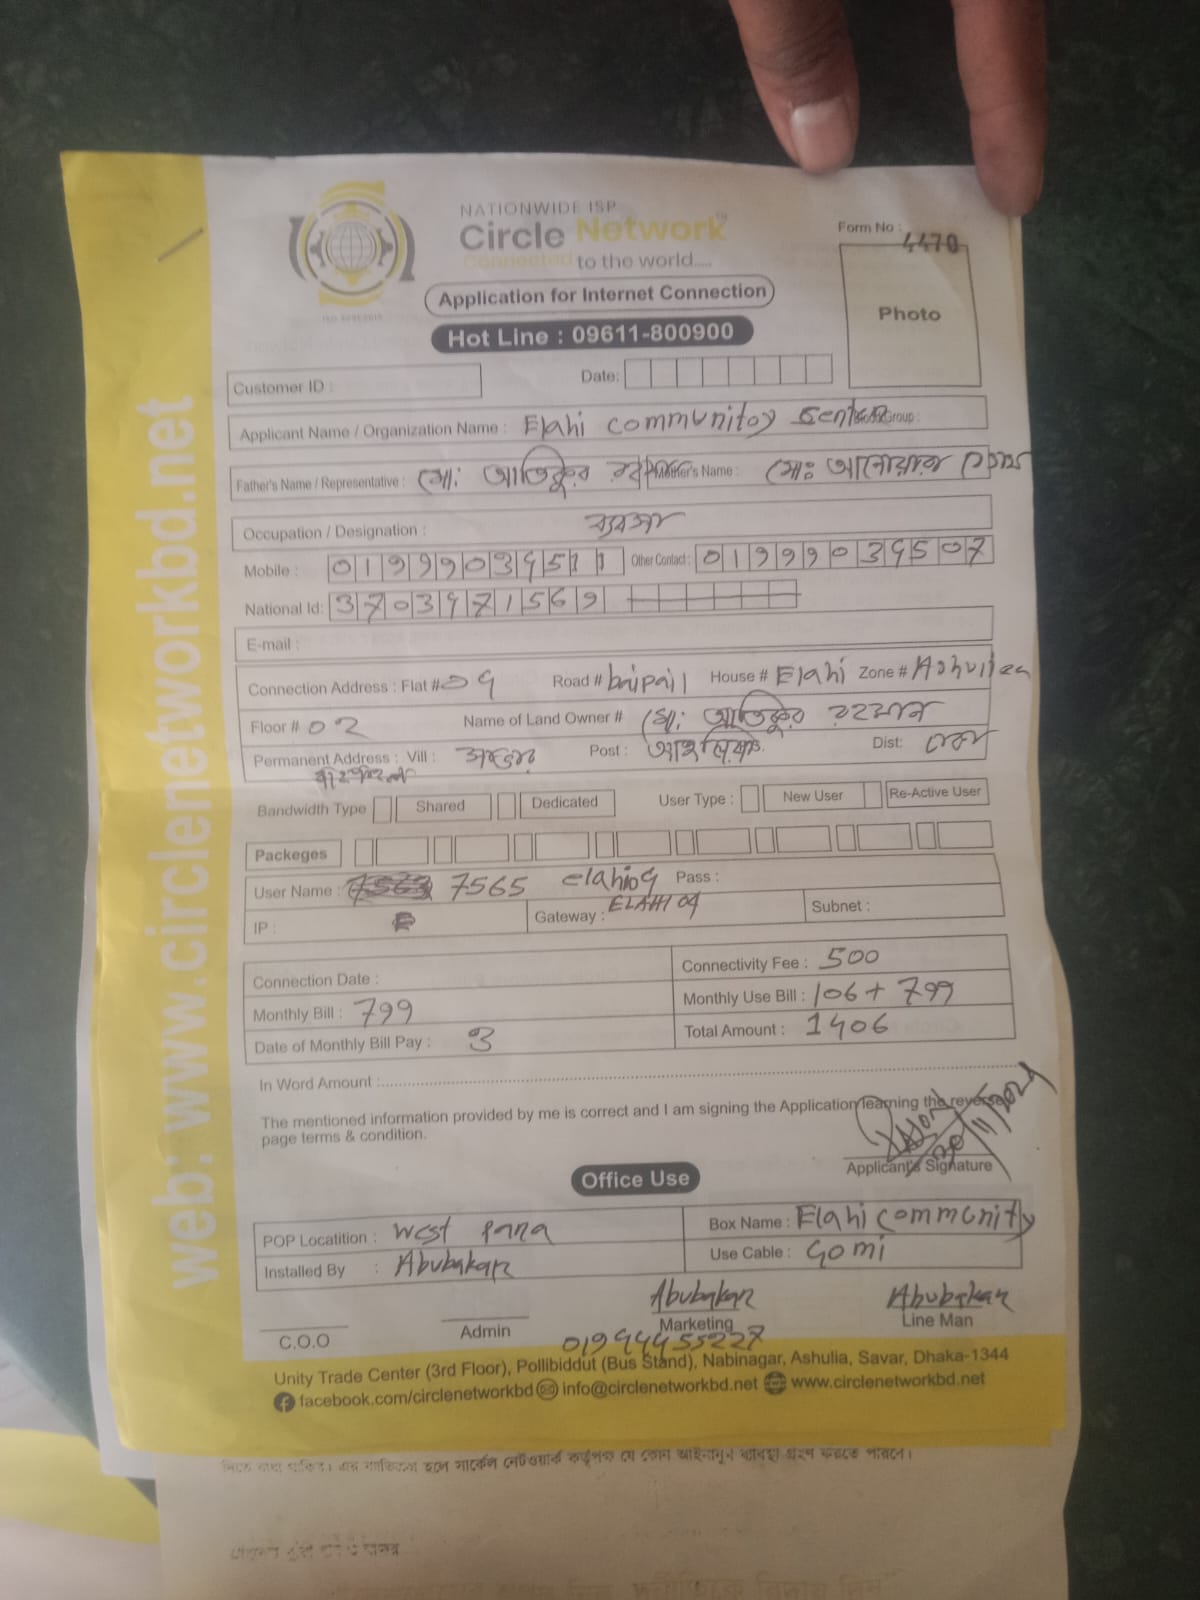 NATIONWIDE ISP
Circle Network™
Connected to the world.....
Form No : 4470
Application for Internet Connection
Photo
Hot Line : 09611-800900
Customer ID :
Date:
Applicant Name / Organization Name : Elahi communitoy Senter Group :
Father's Name / Representative : মো: আতিকুর Mother's Name : মোঃ আনোয়ার
Occupation / Designation : ব্যবসা
Mobile : 01999039511 Other Contact : 01999039507
National Id: 3703971569
E-mail :
Connection Address : Flat # 09 Road # baipail House # Elahi Zone # Ashuliea
Floor # 02 Name of Land Owner # মো: আতিকুর রহমান
Permanent Address : Vill : Post : Dist: ঢাকা
বাইপাইল
Bandwidth Type Shared Dedicated User Type : New User Re-Active User
Packeges
User Name : 7565 elahi09 Pass :
IP : Gateway : ELAHI 09 Subnet :
Connection Date :
Connectivity Fee : 500
Monthly Bill : 799
Monthly Use Bill : 106 + 799
Date of Monthly Bill Pay : 3
Total Amount : 1406
In Word Amount :
The mentioned information provided by me is correct and I am signing the Application learning the reverse
page terms & condition.
Applicant's Signature
Office Use
POP Locatition : West Para
Box Name : Elahi commcnity
Installed By : Abubakar
Use Cable : Gomi
C.O.O
Admin
Abubakar
Marketing
01944455227
Abubakar
Line Man
Unity Trade Center (3rd Floor), Pollibiddut (Bus Stand), Nabinagar, Ashulia, Savar, Dhaka-1344
facebook.com/circlenetworkbd info@circlenetworkbd.net www.circlenetworkbd.net
web: www.circlenetworkbd.net
হলে সার্কেল নেটওয়ার্ক কর্তৃপক্ষ যে কোন আইনানুগ ব্যবস্থা গ্রহণ করতে পারবে।